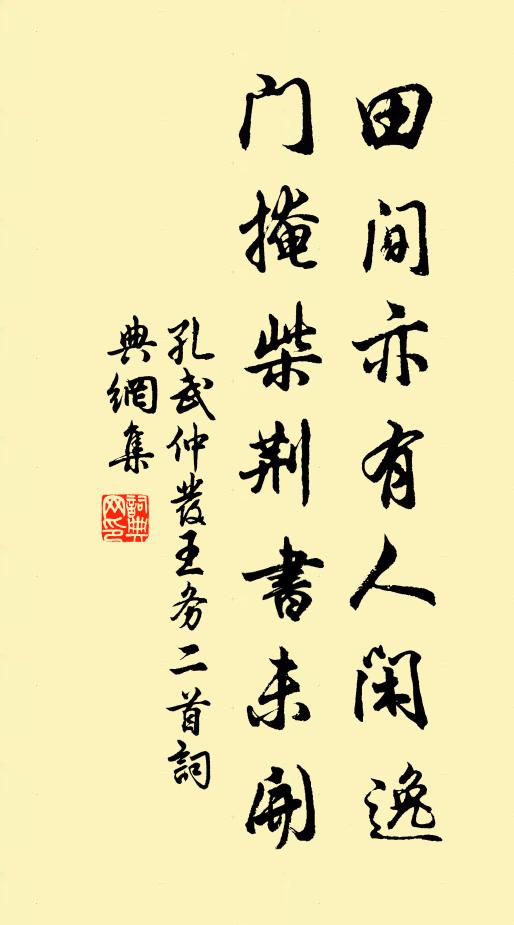 田间亦有人闲逸
门掩柴荆书未开
孔武仲發王务二首詞
典網集
詞典网印